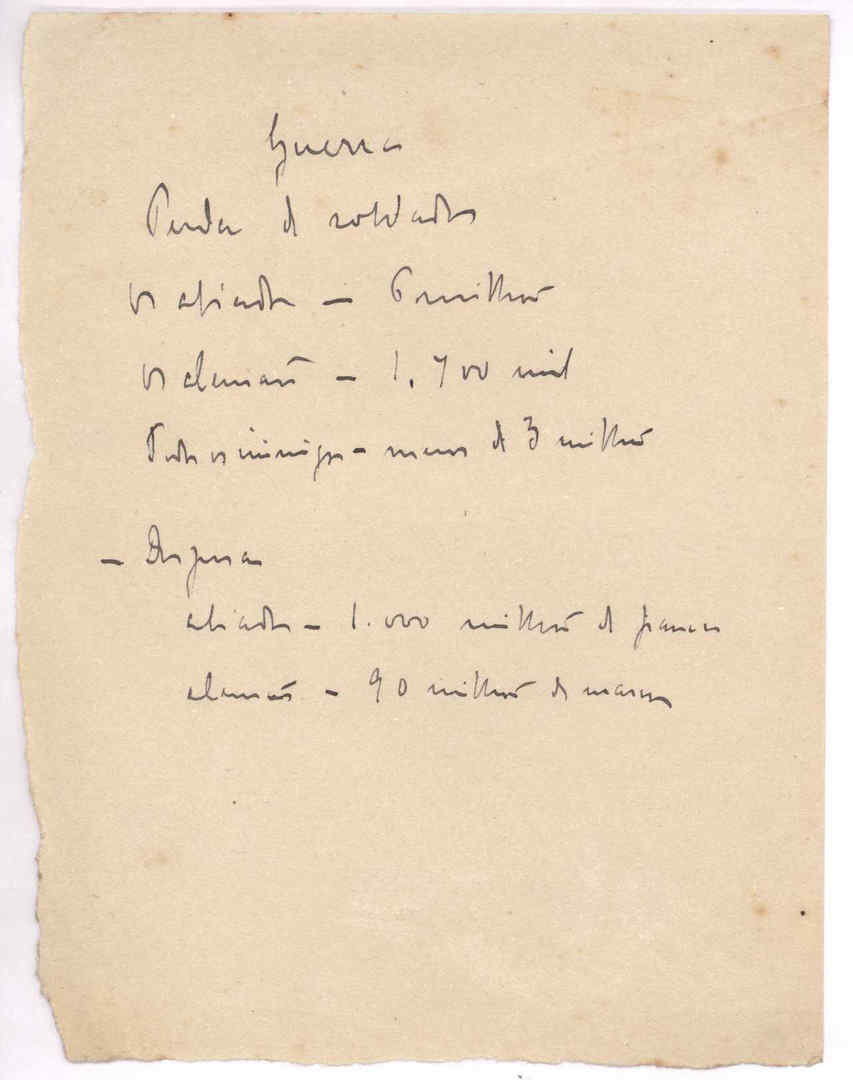 Guerra
Perda de soldados
os aliados — 6 milhões
os alemães — 1.700 mil
Todos os inimigos — menos de 3 milhões
— Despesas
aliados — 1.000 milhões de francos
alemães — 90 milhões de marcos